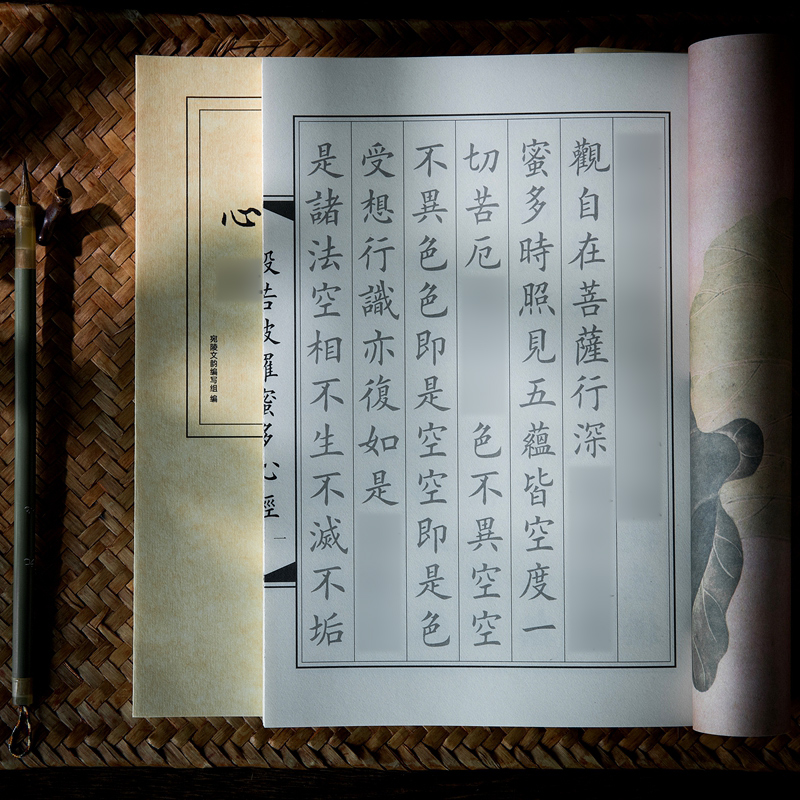 觀自在菩薩行深
蜜多時照見五蘊皆空度一
切苦厄 色不異空空
不異色色即是空空即是色
受想行識亦復如是
是諸法空相不生不滅不垢
般若波羅蜜多心經
一
心
宛陵文韵编写组 编